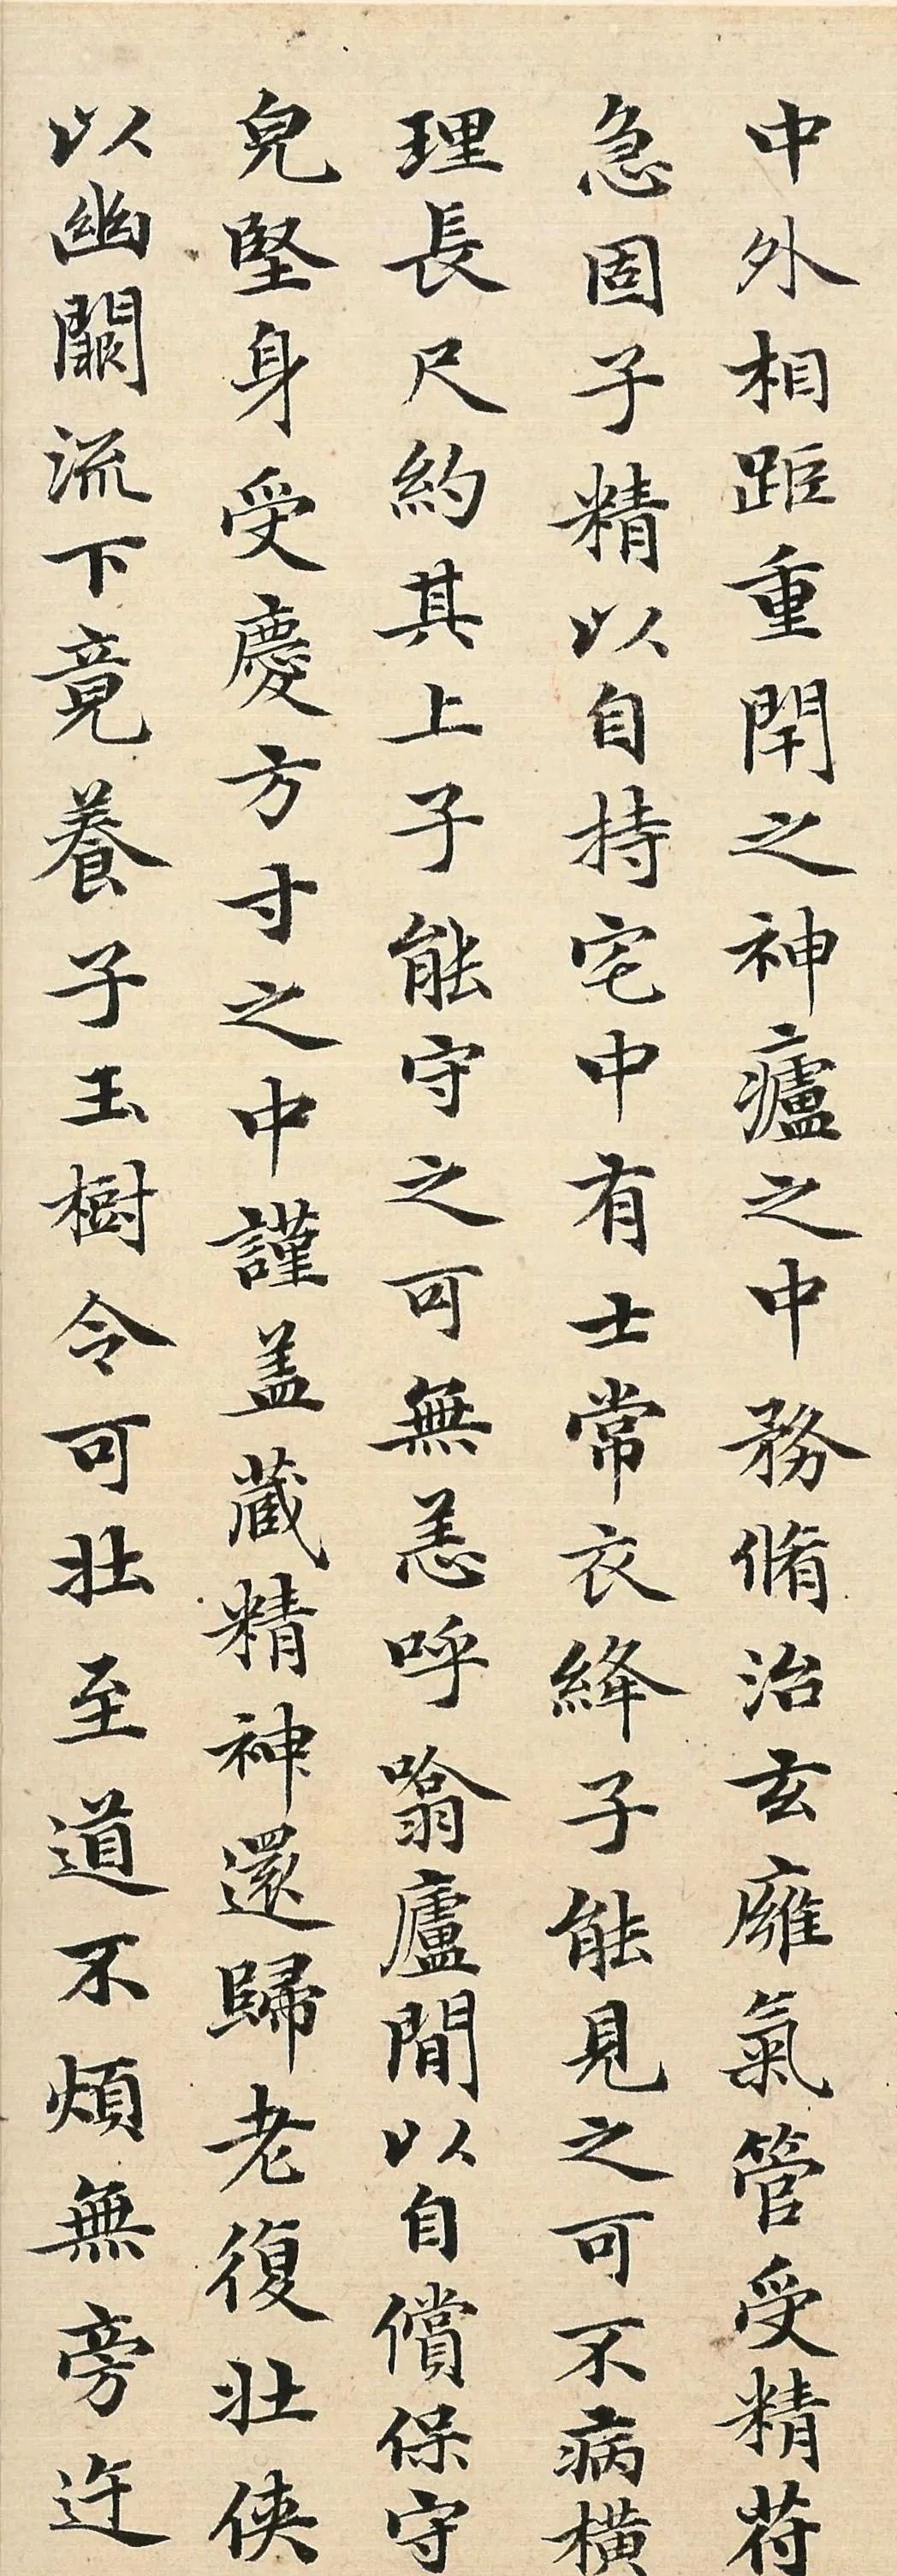 中外相距重閇之神廬之中務脩治玄癰氣管受精苻
急固子精以自持宅中有士常衣絳子能見之可不病橫
理長尺約其上子能守之可無恙呼噏廬間以自償保守
皃堅身受慶方寸之中謹盖藏精神還歸老復壯俠
以幽闕流下竟養子玉樹令可壯至道不煩無旁迕